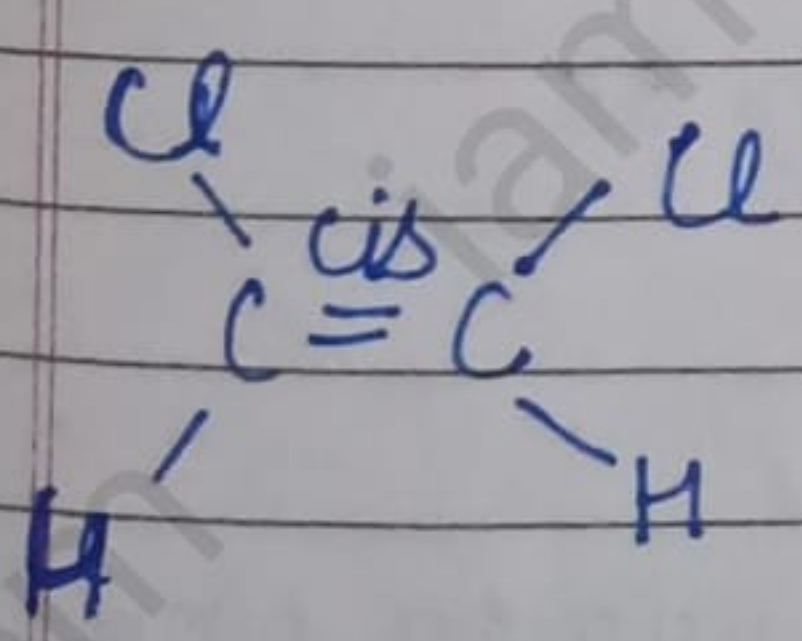 Cl Cl
cis
C = C
H H